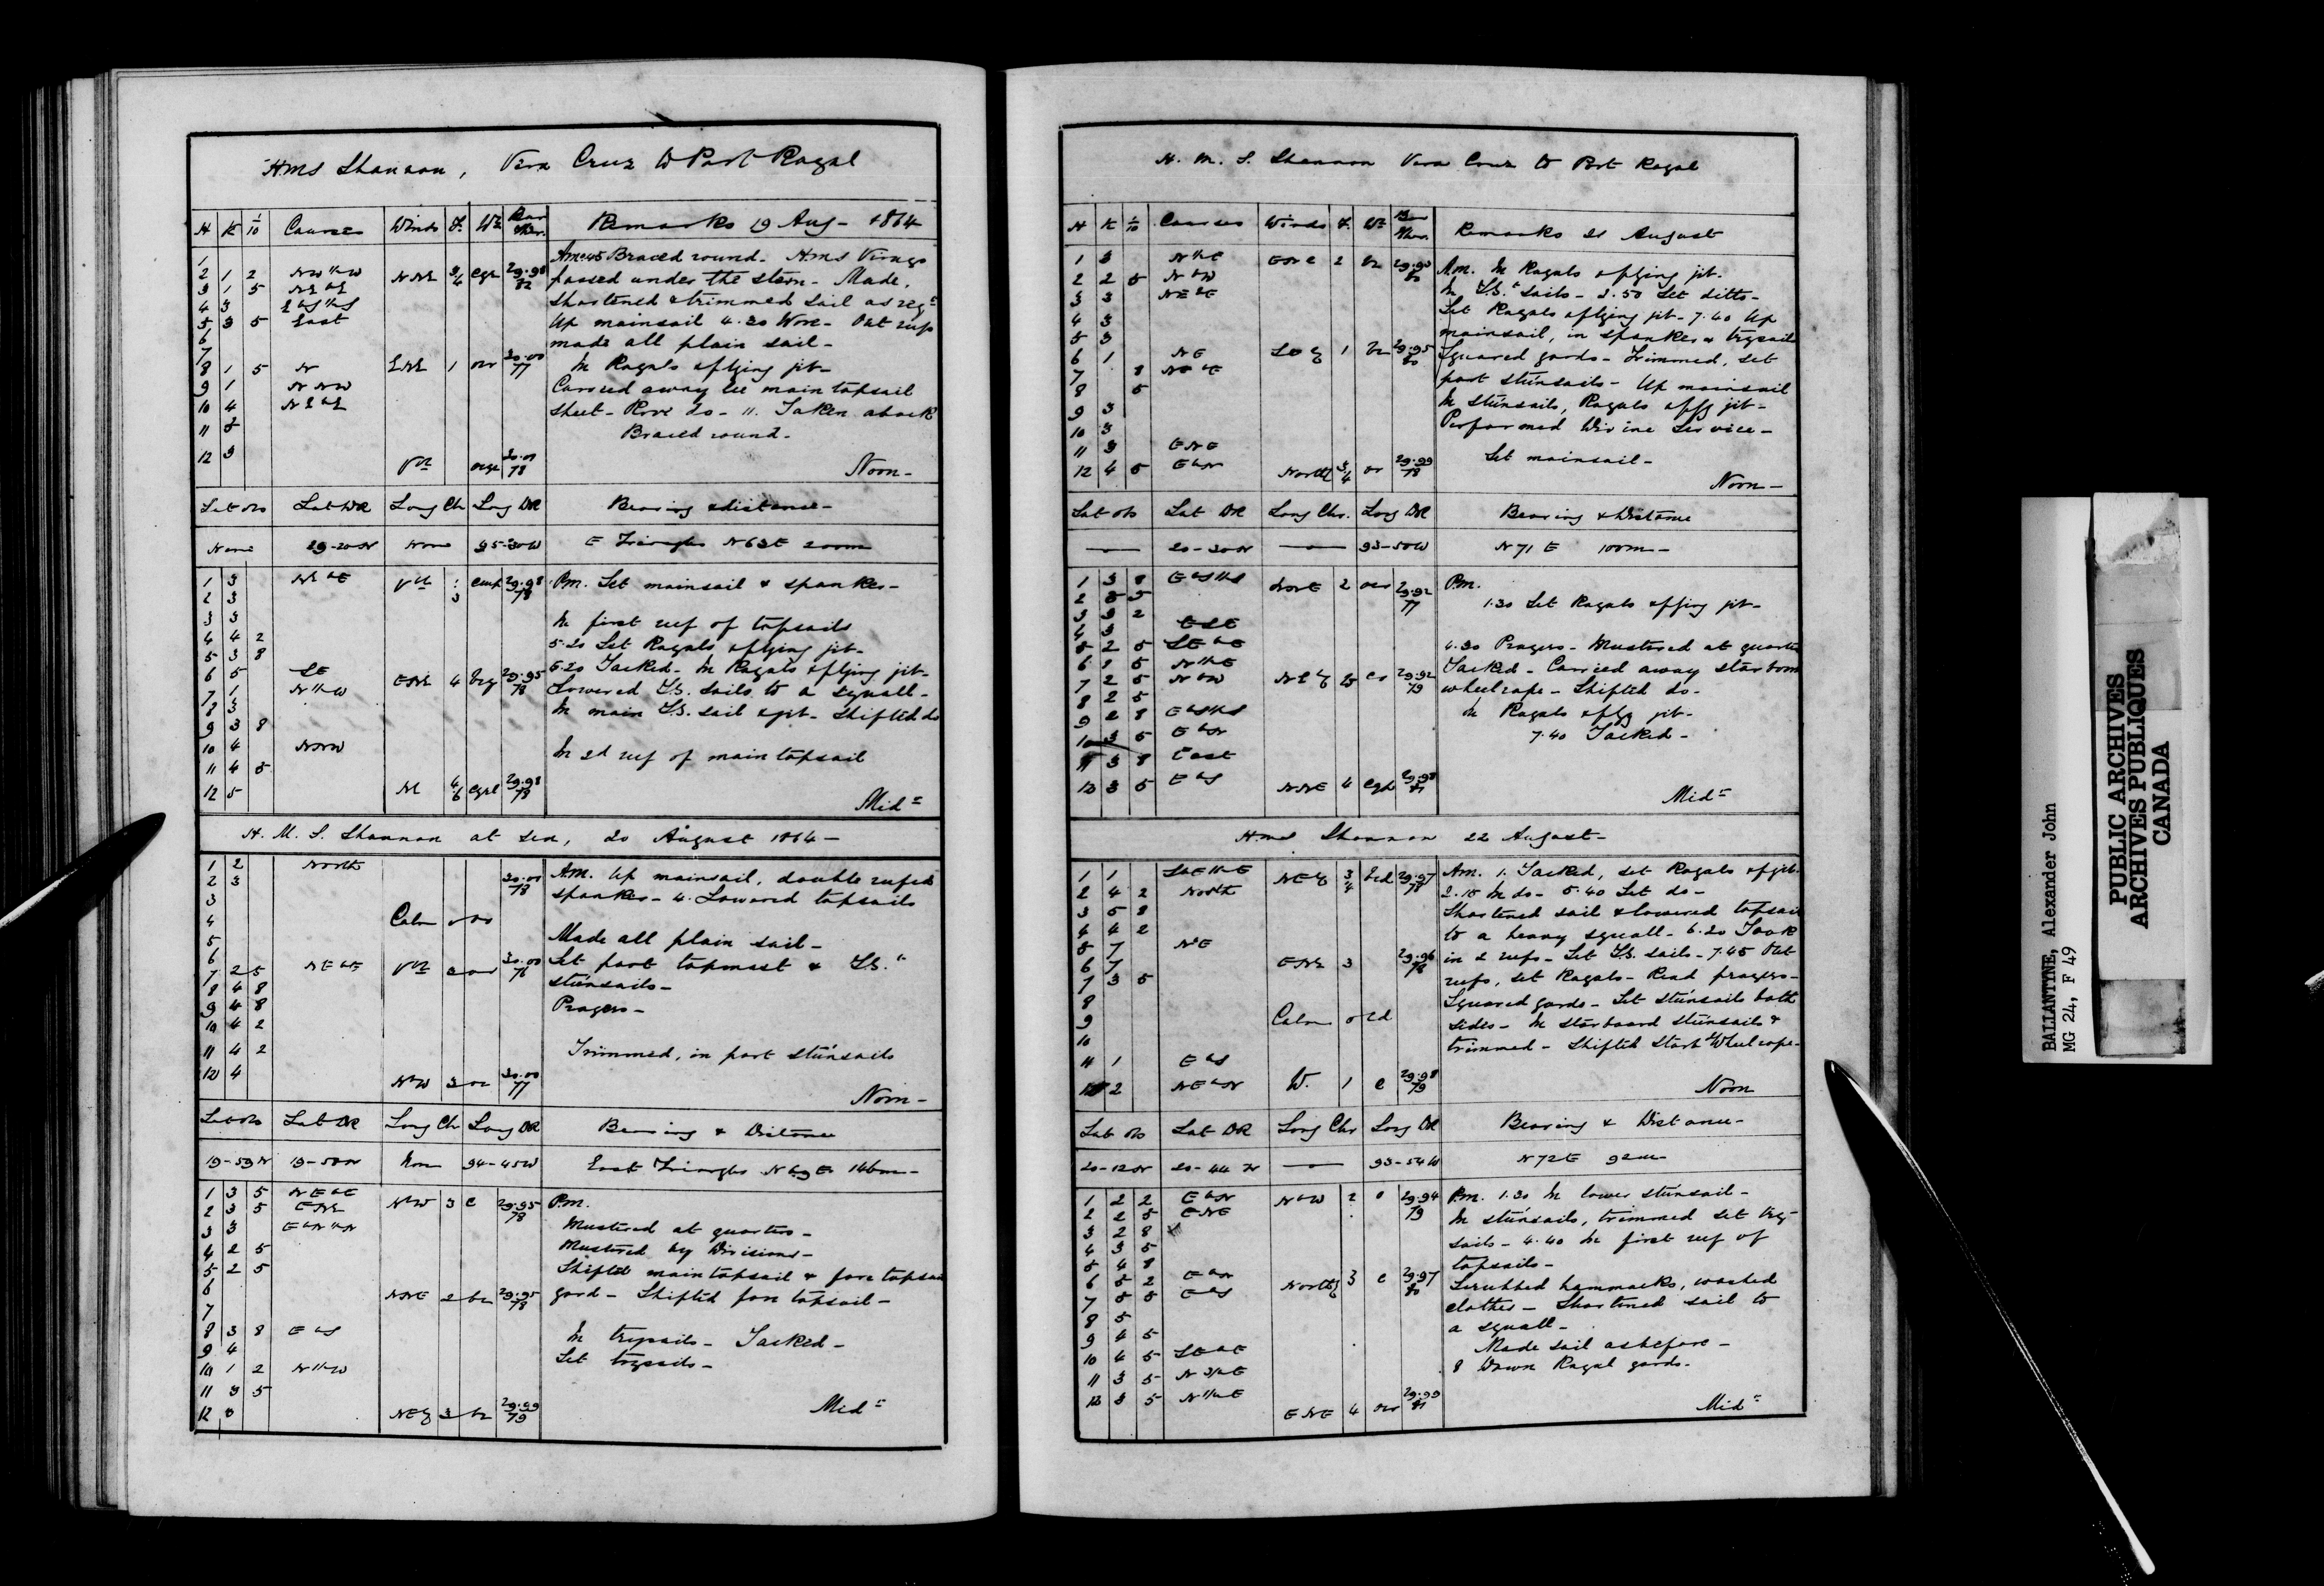 HMS Shannon, Vera Cruz to Port Royal
H K 1/10 Courses Winds F. Wr Bar Ther. Remarks 19 Aug - 1864
1 Am 12.45 Braced round - HMS Virago
2 1 2 NW½W NNE 3/4 cgr 29.98 82 passed under the stern - Made,
3 1 5 NEbE shortened & trimmed sail as reqd
4 3 EbS½S Up mainsail 4.20 Wore - Out reefs
5 3 5 East
6 made all plain sail -
7
8 1 5 N ENE 1 or 30.00 77 In Royals & flying jib -
9 1 NNW Carried away lee main topsail
10 4 NEbE sheet - Rove do - 11. Taken aback
11 3 Braced round -
12 3 Vble 30.01 78 Noon -
Lat obs Lat DR Long Ch Long DR Bearing & distance -
None 19-20N None 95-30W E Triangles N63E 200m
1 3 NEbE Vble 29.98 78 Pm. Set mainsail & spanker -
2 3
3 3 In first reef of topsails
4 4 2 5.20 Set Royals & flying jib -
5 3 8
6 5 SE ENE 4 bcq 29.95 78 6.20 Tacked - In Royals & flying jib -
7 1 N½W Lowered T.S. sails to a squall -
8 3 In main T.S. sail & jib - Shifted do
9 3 8
10 4 NNW In 2d reef of main topsail
11 4 5
12 5 NE 4/6 29.98 78 Mid=
H. M. S. Shannon at sea, 20 August 1864 -
1 2 North 30.01 78 A.M. Up mainsail, double reefed
2 3 spanker - 4. Lowered topsails
3
4 Calm 0
5 Made all plain sail -
6 30.00 76 Set port topmast & T.S.
7 2 5 NEbE Vble 2 stunsails -
8 4 8
9 4 8 Prayers -
10 4 2
11 4 2 Trimmed, in port stunsails
12 4 NbW 3 30.00 77 Noon -
Lat obs Lat DR Long Ch Long DR Bearing & Distance
19-59N 19-50N None 94-45W East Triangles N69E 146m -
1 3 5 NEbE NbW 3 c 29.95 78 P.m.
2 3 5 ENE Mustered at quarters -
3 3 EbN½N
4 2 5 Mustered by Divisions -
5 2 5 Shifted main topsail & fore topsail
6 NNE 2 bc 29.95 78 yard - Shifted fore topsail -
7
8 3 8 EbS In trysails - Tacked -
9 4 Set trysails -
10 1 2 N½W
11 3 5
12 NEly 3 bc 29.99 79 Mid=
H. M. S. Shannon Vera Cruz to Port Royal
H K 1/10 Courses Winds F. Wr Bar Ther. Remarks 21 August
1 3 N½E 2 bc 29.90 80 A.m. In Royals & flying jib -
2 2 5 NbW In T.S. Sails - 2.50 Set ditto -
3 3 NEbE Set Royals & flying jib - 7.40 Up
4 3 mainsail, in spanker & trysails
5 3
6 1 NE 1 bc 29.95 80 Squared yards - Trimmed, set
7 8 NEbE port stunsails - Up mainsail
8 5 In stunsails, Royals & flyg jib -
9 3
10 3 Performed Divine Service -
11 3 ENE
12 4 5 EbN Northly 3/4 or 29.99 78 Set mainsail -
Noon -
Lat obs Lat DR Long Chr. Long DR Bearing & Distance
20-30N 93-50W N71E 100m -
1 3 8 EbS½S NNE 2 29.92 77 P.m.
2 5 5 1.30 Set Royals & flying jib -
3 3 2
4 3 ESE
5 2 5 SEbE 4.30 Prayers - Mustered at quarters
6 1 5 N½E Tacked - Carried away starboard
7 2 5 NbW NEly 29.92 79 wheelrope - Shifted do -
8 2 5
9 2 8 EbS½S In Royals & flyg jib -
10 3 5 EbN 7.40 Tacked -
11 3 8 East
12 3 5 EbS NNE 4 29.98 81 Mid=
HMS Shannon 22 August -
1 1 NEly 3/4 bcd 29.97 78 Am. 1. Tacked, set Royals & f jib
2 4 2 North 2.15 In do - 5.40 Set do -
3 5 8 Shortened sail & lowered topsails
4 4 2 to a heavy squall - 6.20 Took
5 7 NbE
6 7 ENE 3 29.96 78 in 2 reefs - Set T.S. sails - 7.45 Out
7 3 5 reefs, set Royals - Read prayers -
8 Squared yards - Set stunsails both
9 Calm 0 cd sides - In starboard stunsails &
10 trimmed - Shifted Starbd Wheelrope -
11 1 EbS
12 2 NEbN W. 1 c 29.98 79 Noon
Lat obs Lat DR Long Chr Long DR Bearing & Distance -
20-12N 20-44N 93-54W N72E 92m
1 2 2 EbN NbW 2 29.94 79 P.m. 1.30 In lower stunsail -
2 2 5 ENE In stunsails, trimmed set try
3 2 8 sails - 4.40 In first reef of
4 3 5
5 4 8 topsails -
6 5 2 EbN Northly 3 c 29.97 80 Scrubbed hammocks, washed
7 5 5 EbS clothes - Shortened sail to
8 5 a squall -
9 4 5 Made sail as before -
10 4 5 SEbE 8 Down Royal yards -
11 3 5 N 3/4 E
12 3 5 N½E ENE 4 29.99 81 Mid=
BALLANTYNE, Alexander John
MG 24, F 49
PUBLIC ARCHIVES
ARCHIVES PUBLIQUES
CANADA